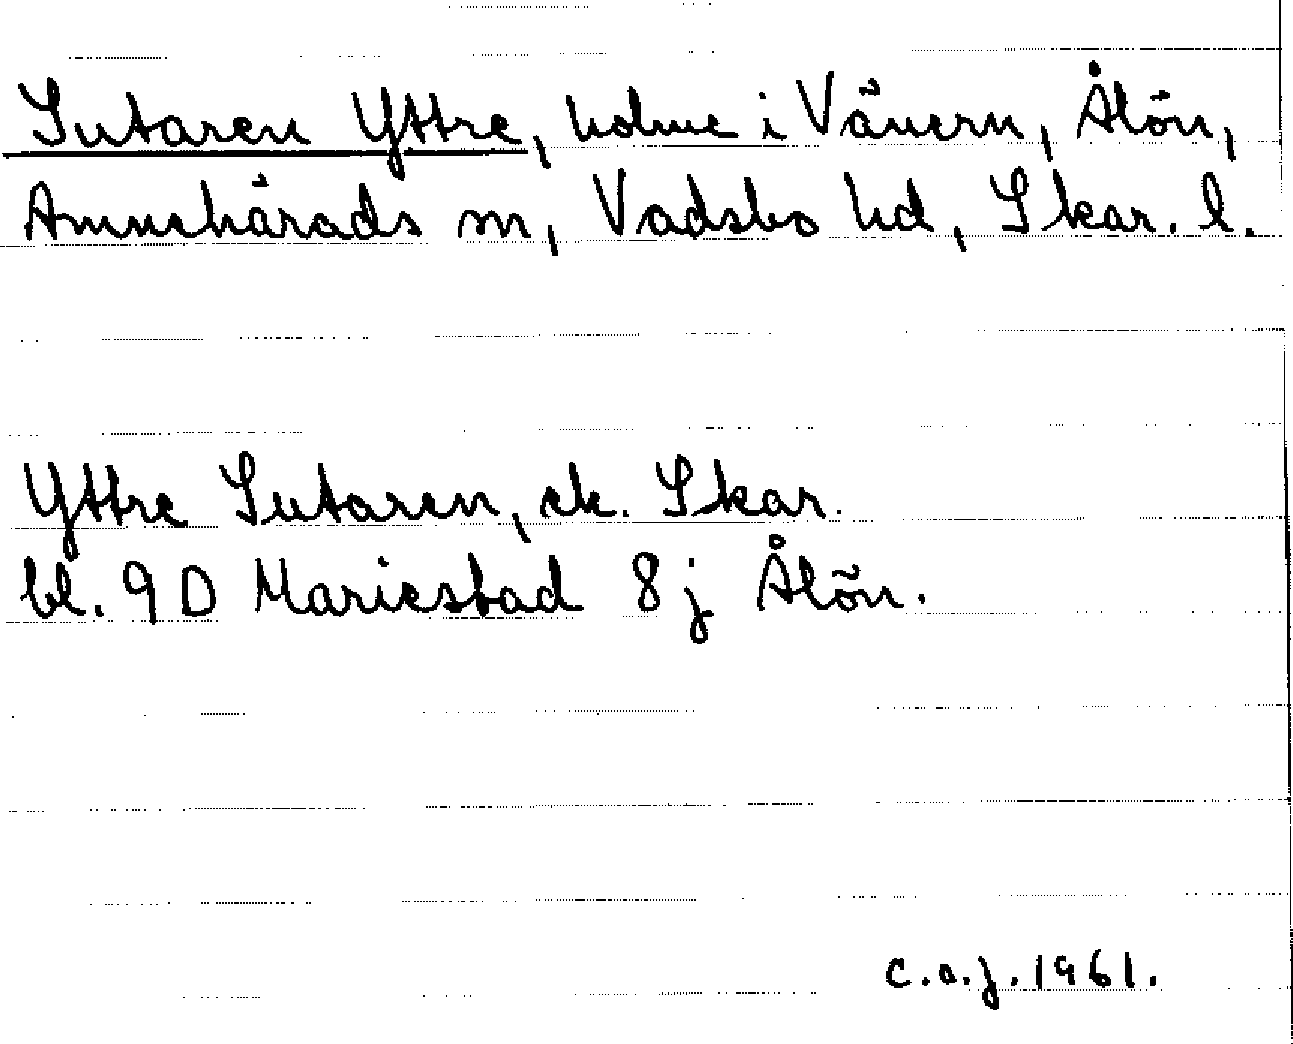 Sutaren Yttre, holme i Vänern, Ålön,
Amnehärads sn, Vadsbo hd, Skar. l.
Yttre Sutaren, ek. Skar.
bl. 9 D Mariestad 8 j Ålön.
C.a.j. 1961.